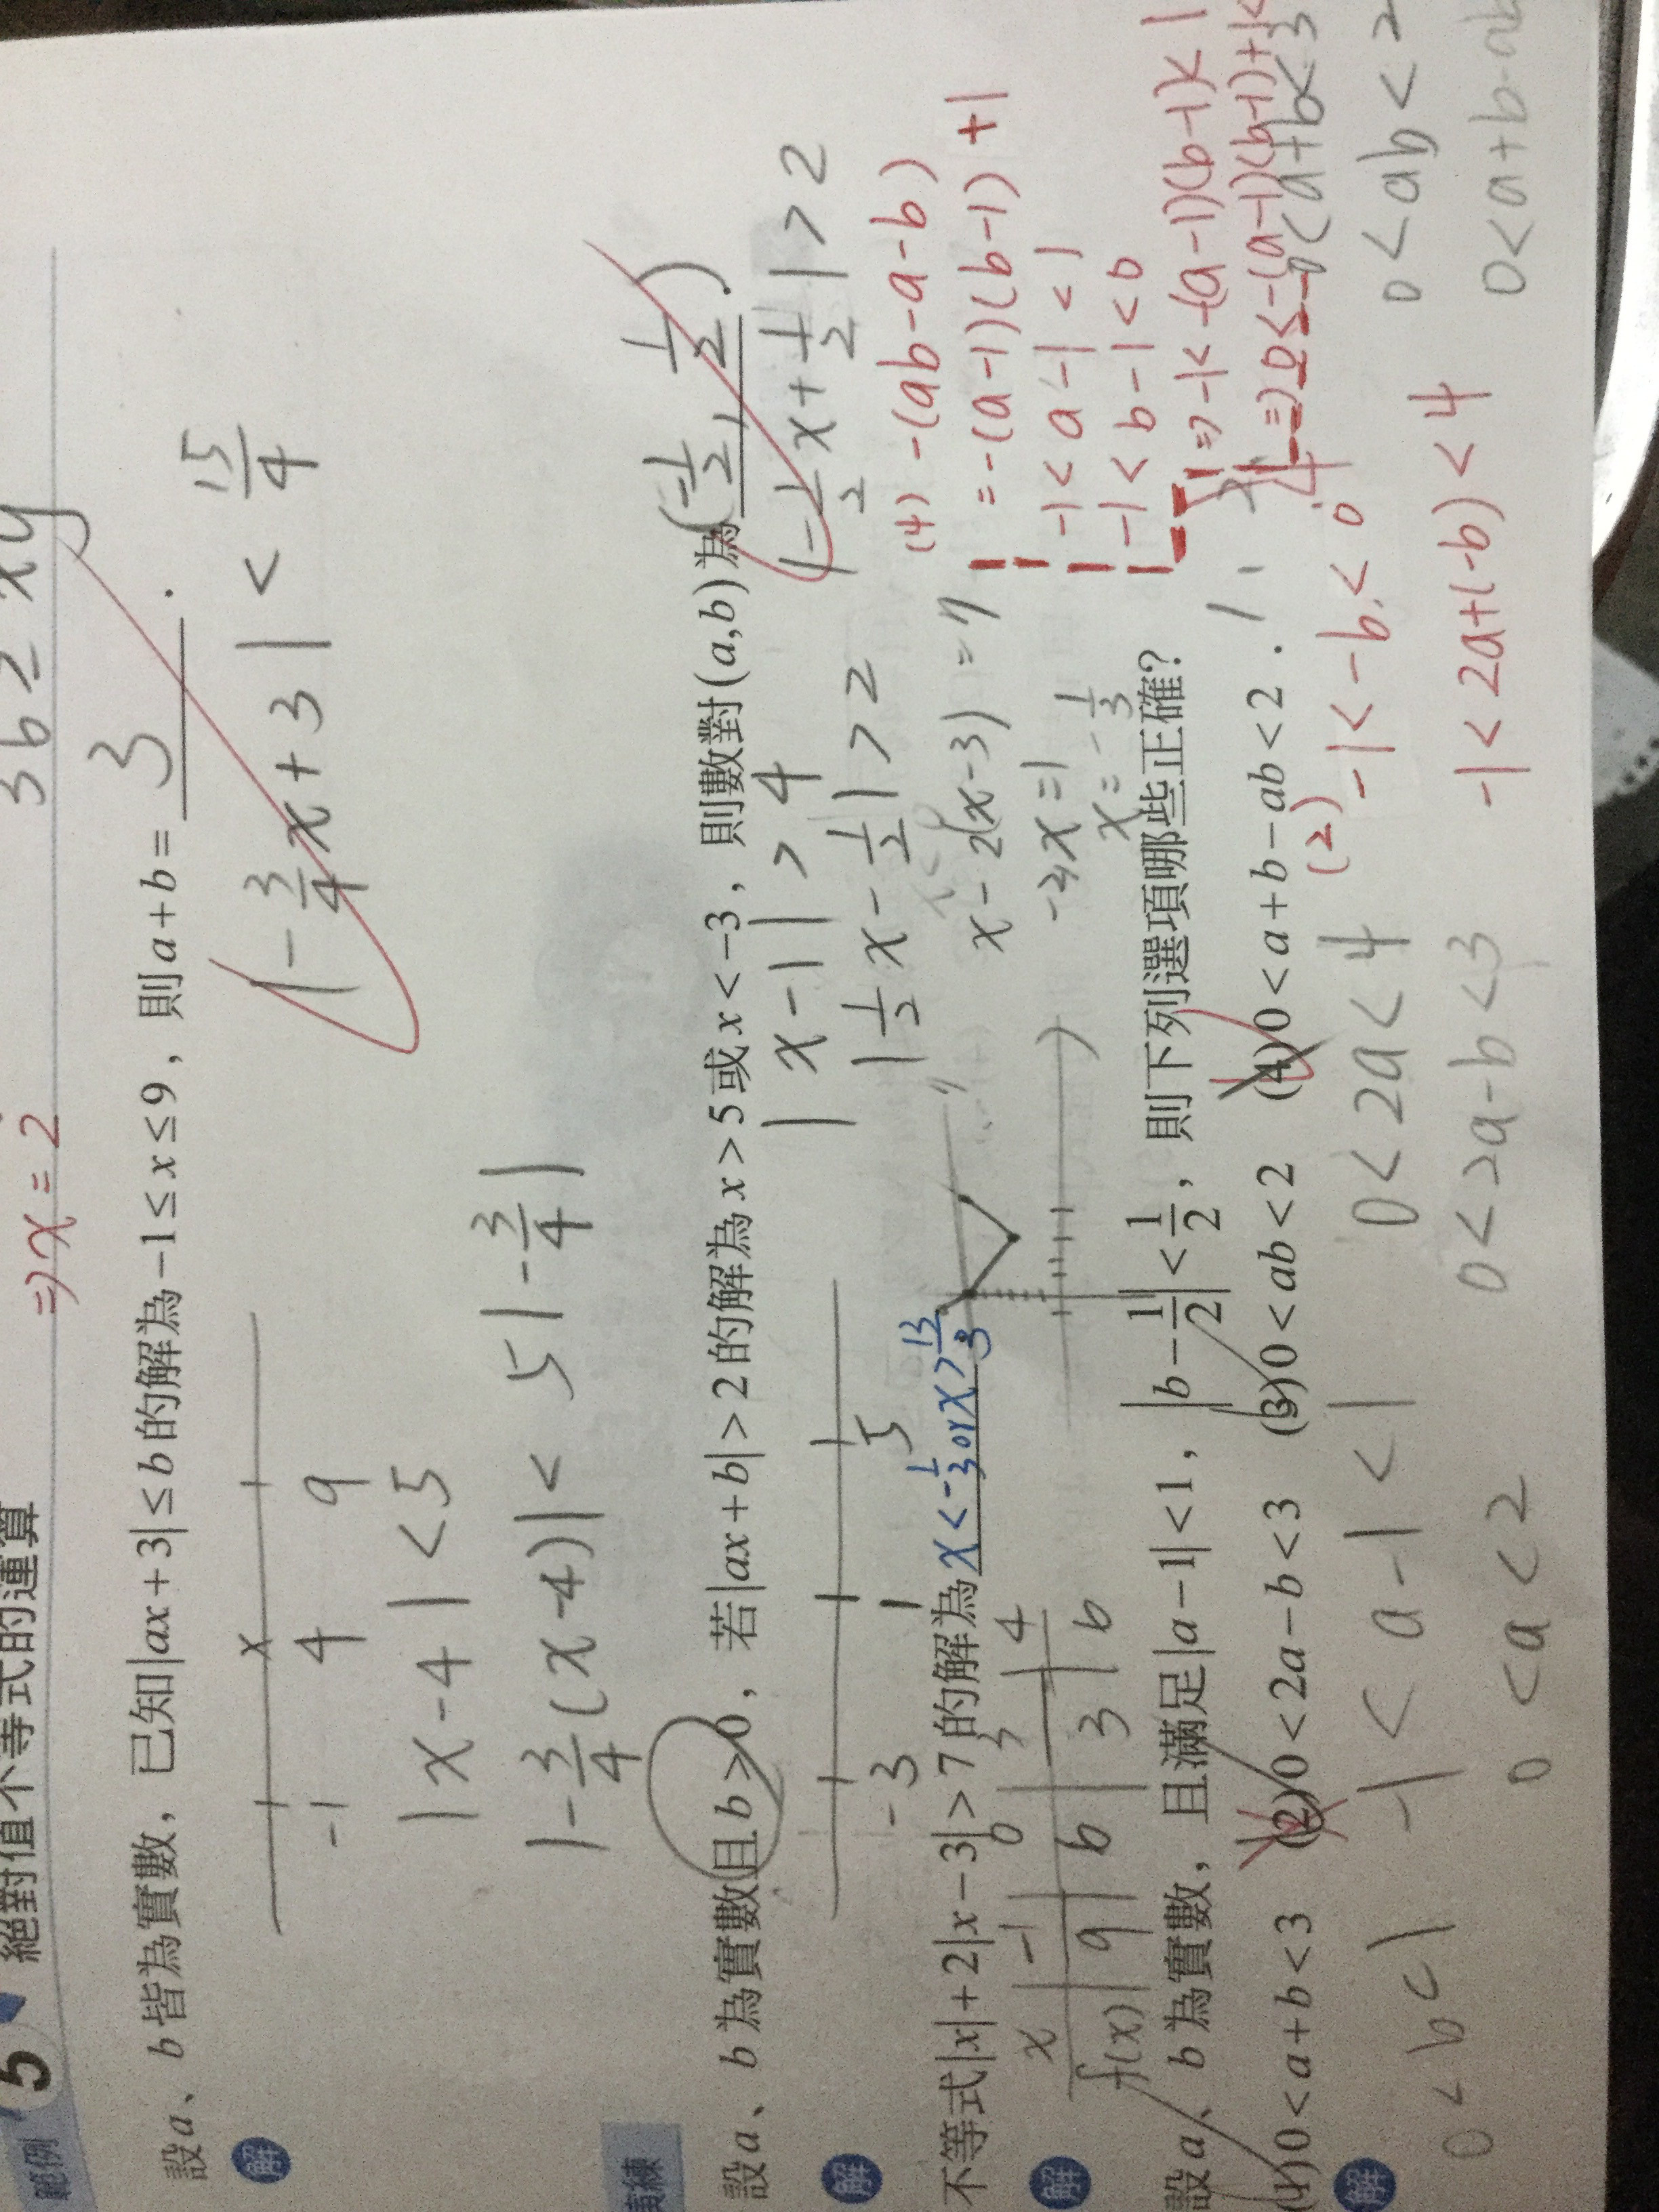 3 b 2 xy
⇒ x = 2
範例 5 絕對值不等式的運算
設a、b皆為實數，已知|ax+3|≤b的解為-1≤x≤9，則a+b= 3 .
x
-1 4 9
|-3/4 x+3| < 15/4
|x-4| < 5
|-3/4(x-4)| < 5|-3/4|
設a、b為實數且b>0，若|ax+b|>2的解為x>5或x<-3，則數對(a,b)為 (-1/2, 1/2) .
解
-3 1 5
|x-1| > 4
|1/2 x - 1/2| > 2
|-1/2 x + 1/2| > 2
不等式|x|+2|x-3|>7的解為 x<-1/3 or x>13/3
解
x -1 0 3 4
f(x) 9 6 3 6
x-2(x-3)=7
-3x=1
x=-1/3
(4) -(ab-a-b)
=-(a-1)(b-1)+1
-1<a-1<1
-1<b-1<0
⇒-1<-(a-1)(b-1)<1
⇒0<-(a-1)(b-1)+1<
設a、b為實數，且滿足|a-1|<1，|b-1/2|<1/2，則下列選項哪些正確？
(1)0<a+b<3 (2)0<2a-b<3 (3)0<ab<2 (4)0<a+b-ab<2 .
解
0<b<1
-1<a-1<1
0<a<2
0<2a<4
0<2a-b<3
(2) -1<-b<0
-1<2a+(-b)<4
0<a+b<3
0<ab<2
0<a+b-ab